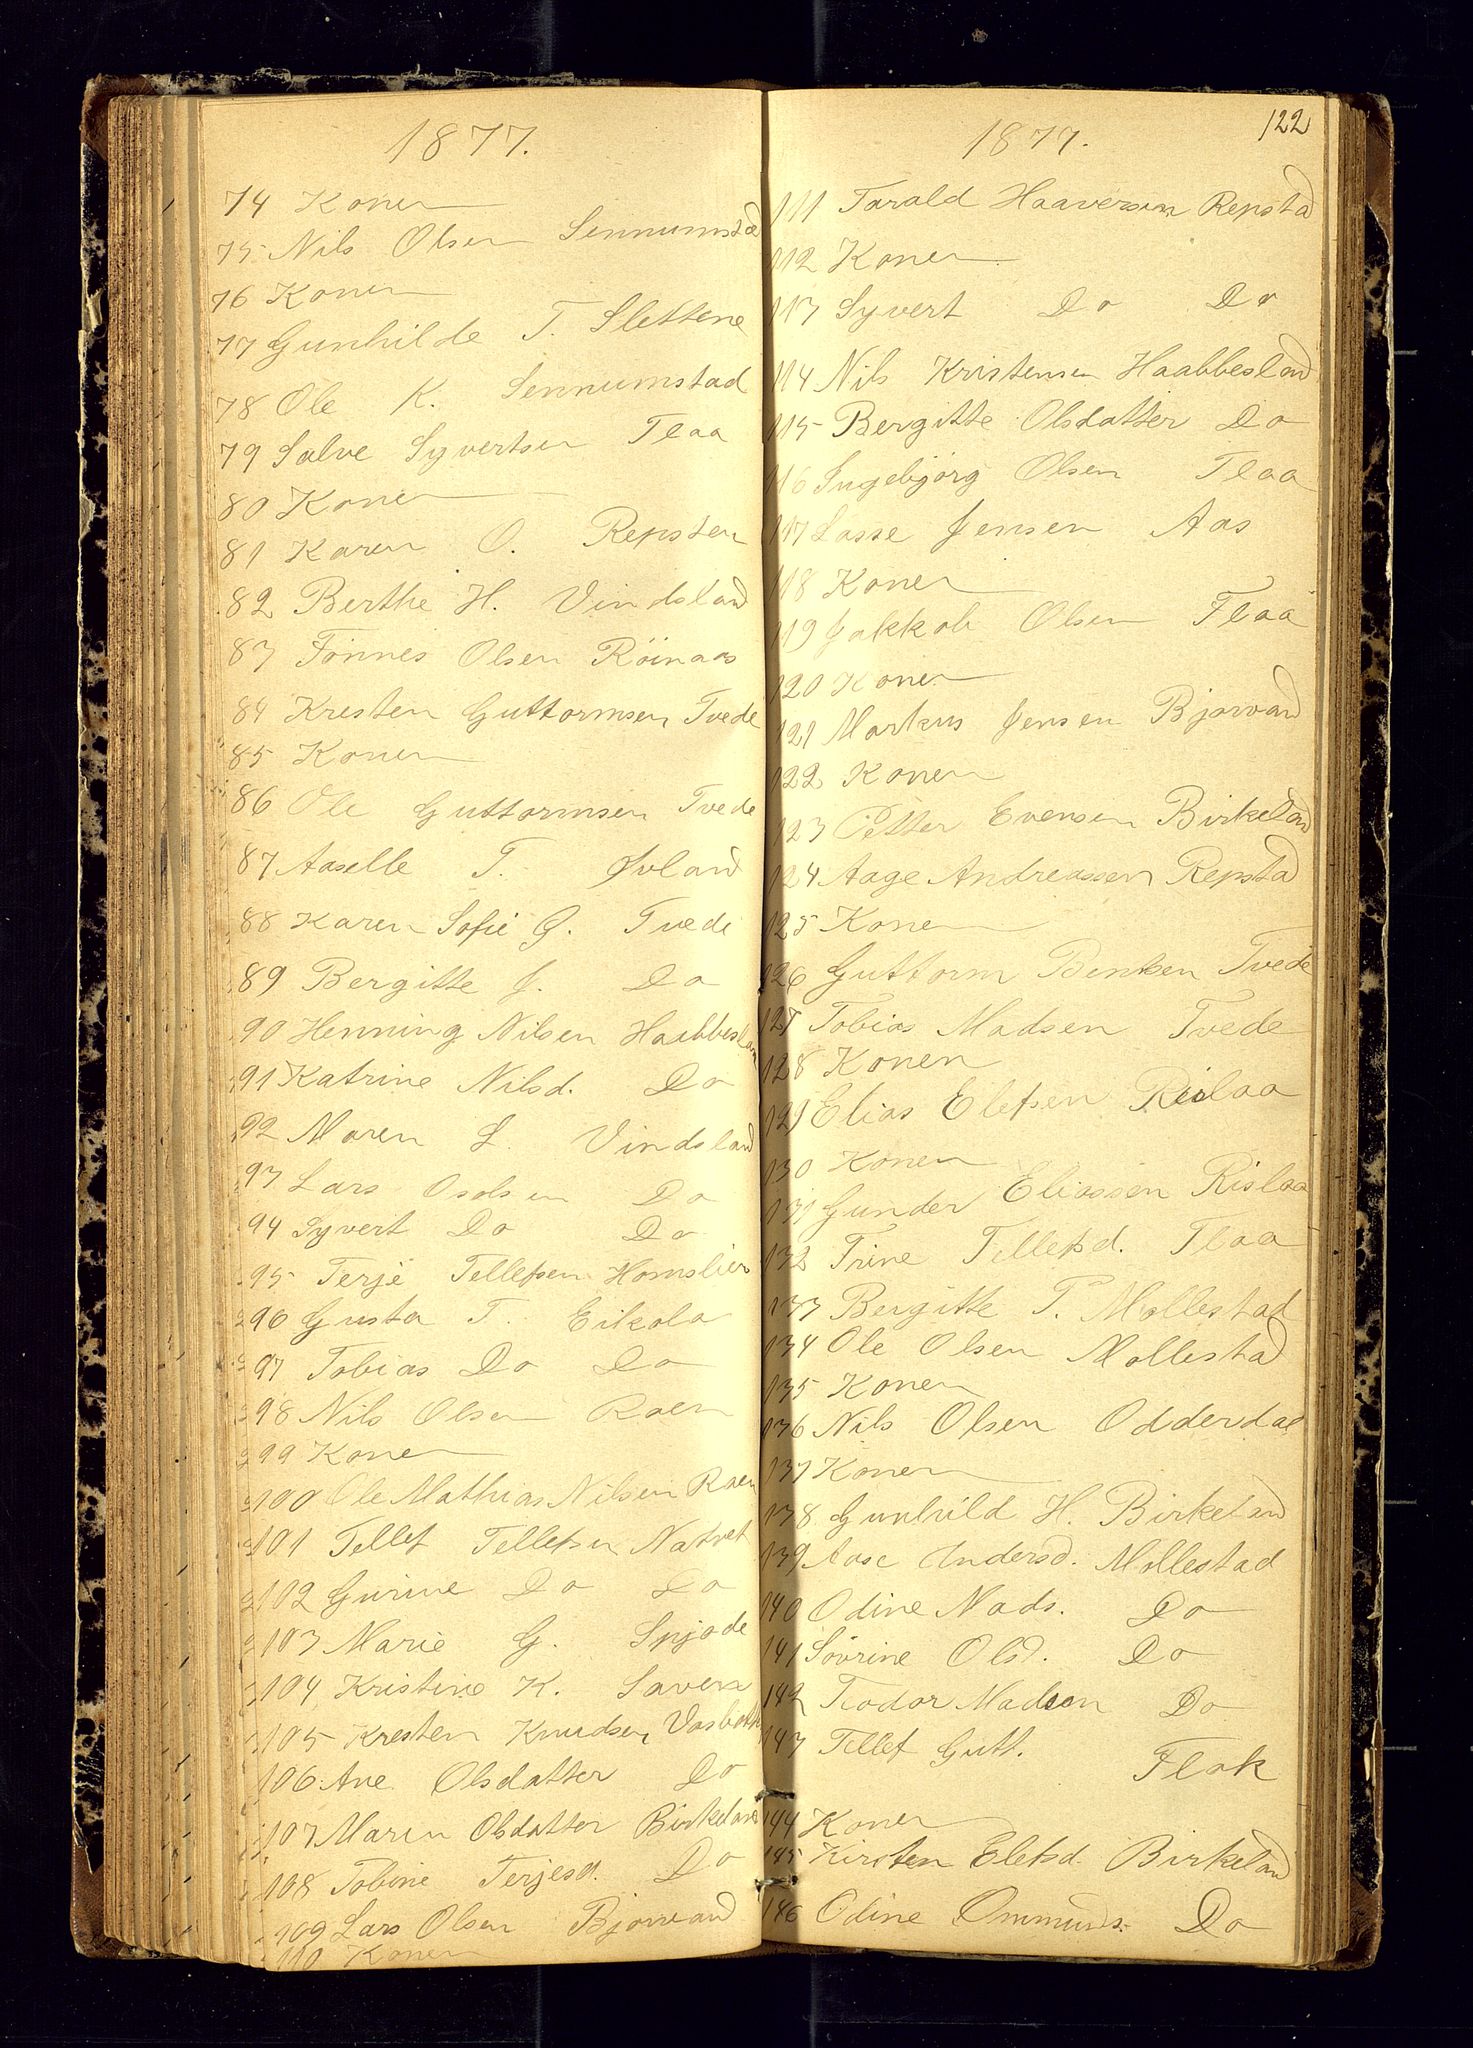 1877.
74 Konen
75 Nils Olsen Sennumstad
76 Konen
77 Gunhilde T. Slettene
78 Ole K. Sennumstad
79 Salve Syvertsen Flaa
80 Konen
81 Karen O. Repsten
82 Berthe H. Vindsland
83 Tönnes Olsen Röinaas
84 Kresten Guttormsen Tvede
85 Konen
86 Ole Guttormsen Tvede
87 Aaselle T. Øvland
88 Karen Sofie G. Tvede
89 Bergitte J. Do
90 Henning Nilsen Haabbesland
91 Katrine Nilsd. Do
92 Maren L. Vindsland
93 Lars Osolsen Do
94 Syvert Do Do
95 Terje Tellefsen Homslien
96 Gusta T. Eikola
97 Tobias Do Do
98 Nils Olsen Roen
99 Konen
100 Ole Mathias Nilsen Roen
101 Tellef Tellefsen Natvet
102 Gurine Do Do
103 Marie G. Spjode
104 Kristine K. Saven
105 Kresten Knudsen
106 Ane Olsdatter Do
107 Maren Olsdatter Birkeland
108 Tobine Terjesd. Do
109 Lars Olsen Bjorvand
110 Konen
122
1877.
111 Tarald Haaversen Repstad
112 Konen
113 Syvert Do Do
114 Nils Kristensen Haabbesland
115 Bergitte Olsdatter Do
116 Ingebjörg Olsen Flaa
117 Lasse Jensen Aas
118 Konen
119 Jakkob Olsen Flaa
120 Konen
121 Markus Jensen Bjorvand
122 Konen
123 Petter Evensen Birkeland
124 Aage Andreassen Repstad
125 Konen
126 Guttorm Bentsen Tvede
127 Tobias Madsen Tvede
128 Konen
129 Elias Elefsen Rislaa
130 Konen
131 Gunder Eliassen Rislaa
132 Trine Tellefsd. Flaa
133 Bergitte T. Mollestad
134 Ole Olsen Mollestad
135 Konen
136 Nils Olsen Odderdal
137 Konen
138 Gunhild H. Birkeland
139 Aase Andersd. Mollestad
140 Odine Mads. Do
141 Sövrine Olsd. Do
142 Teodor Madsen Do
143 Tellef Gutt. Flak
144 Konen
145 Kirsten Elefsd. Birkeland
146 Odine Ommunds. Do